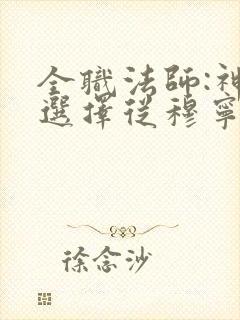 全職法師:神
選擇從穆寧
徐念沙